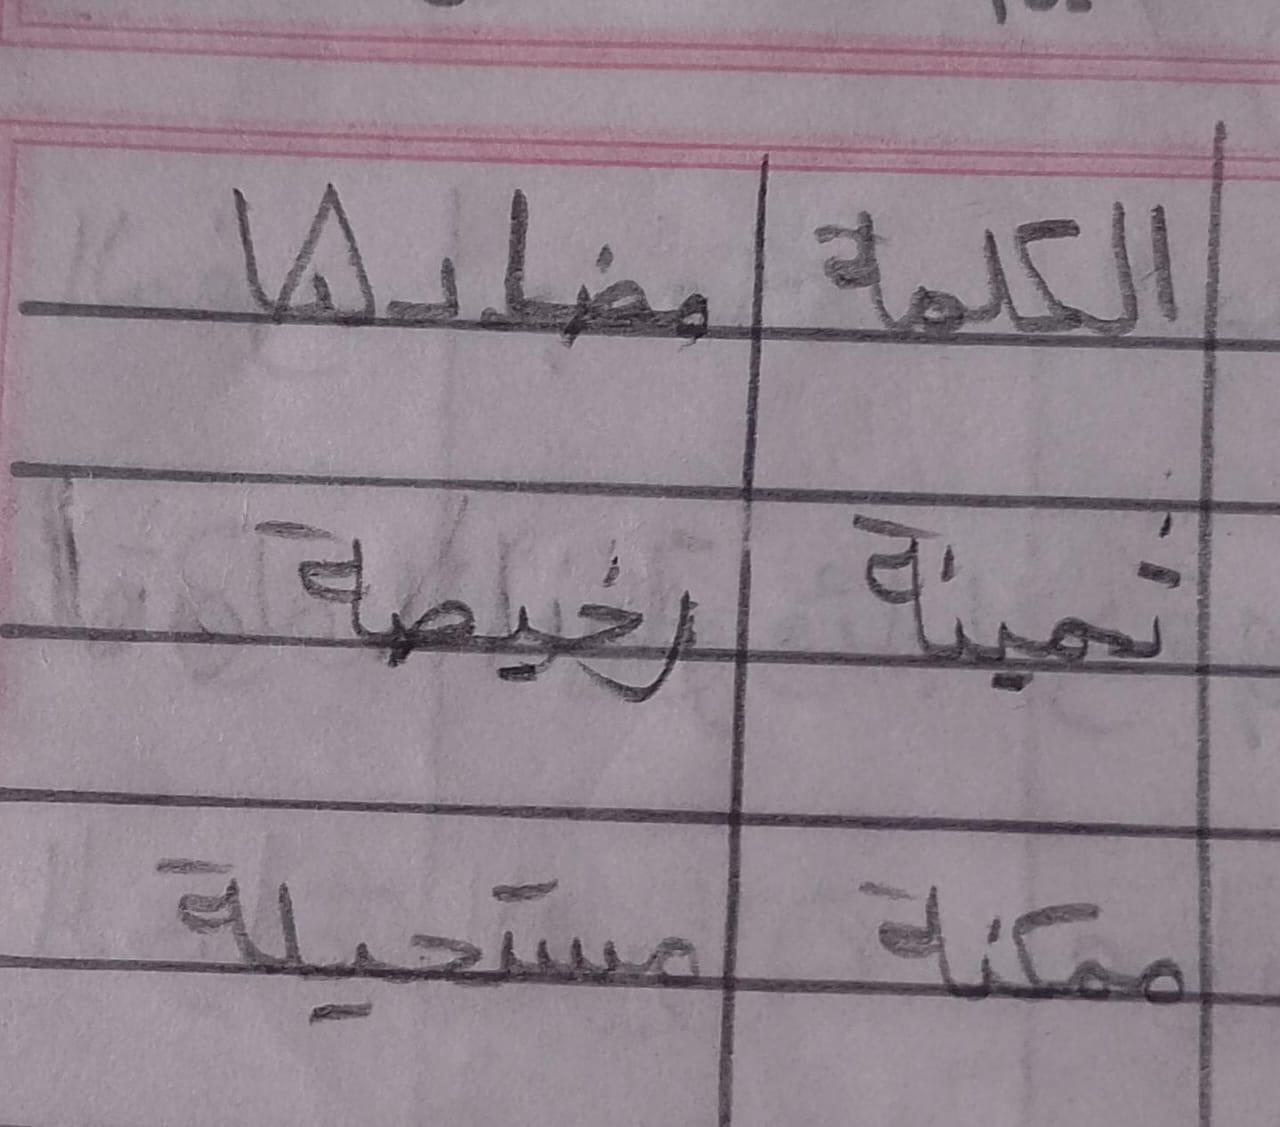 الكلمة مضادها
ثمينة رخيصة
ممكنة مستحيلة